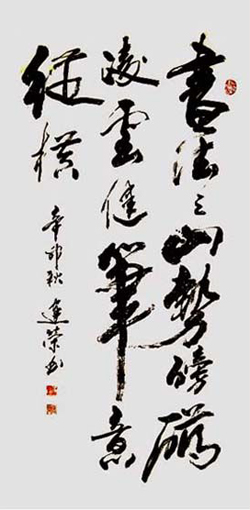 書法之山勢磅礴
凌雲健筆意
縱橫
辛卯秋